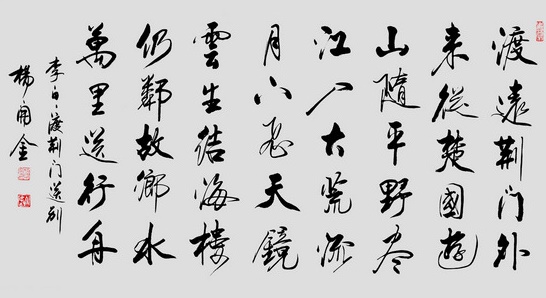 渡遠荆门外
来從楚國遊
山隨平野尽
江入大荒流
月下飛天鏡
雲生结海樓
仍鄰故鄉水
萬里送行舟
李白渡荆门送别
楊 金